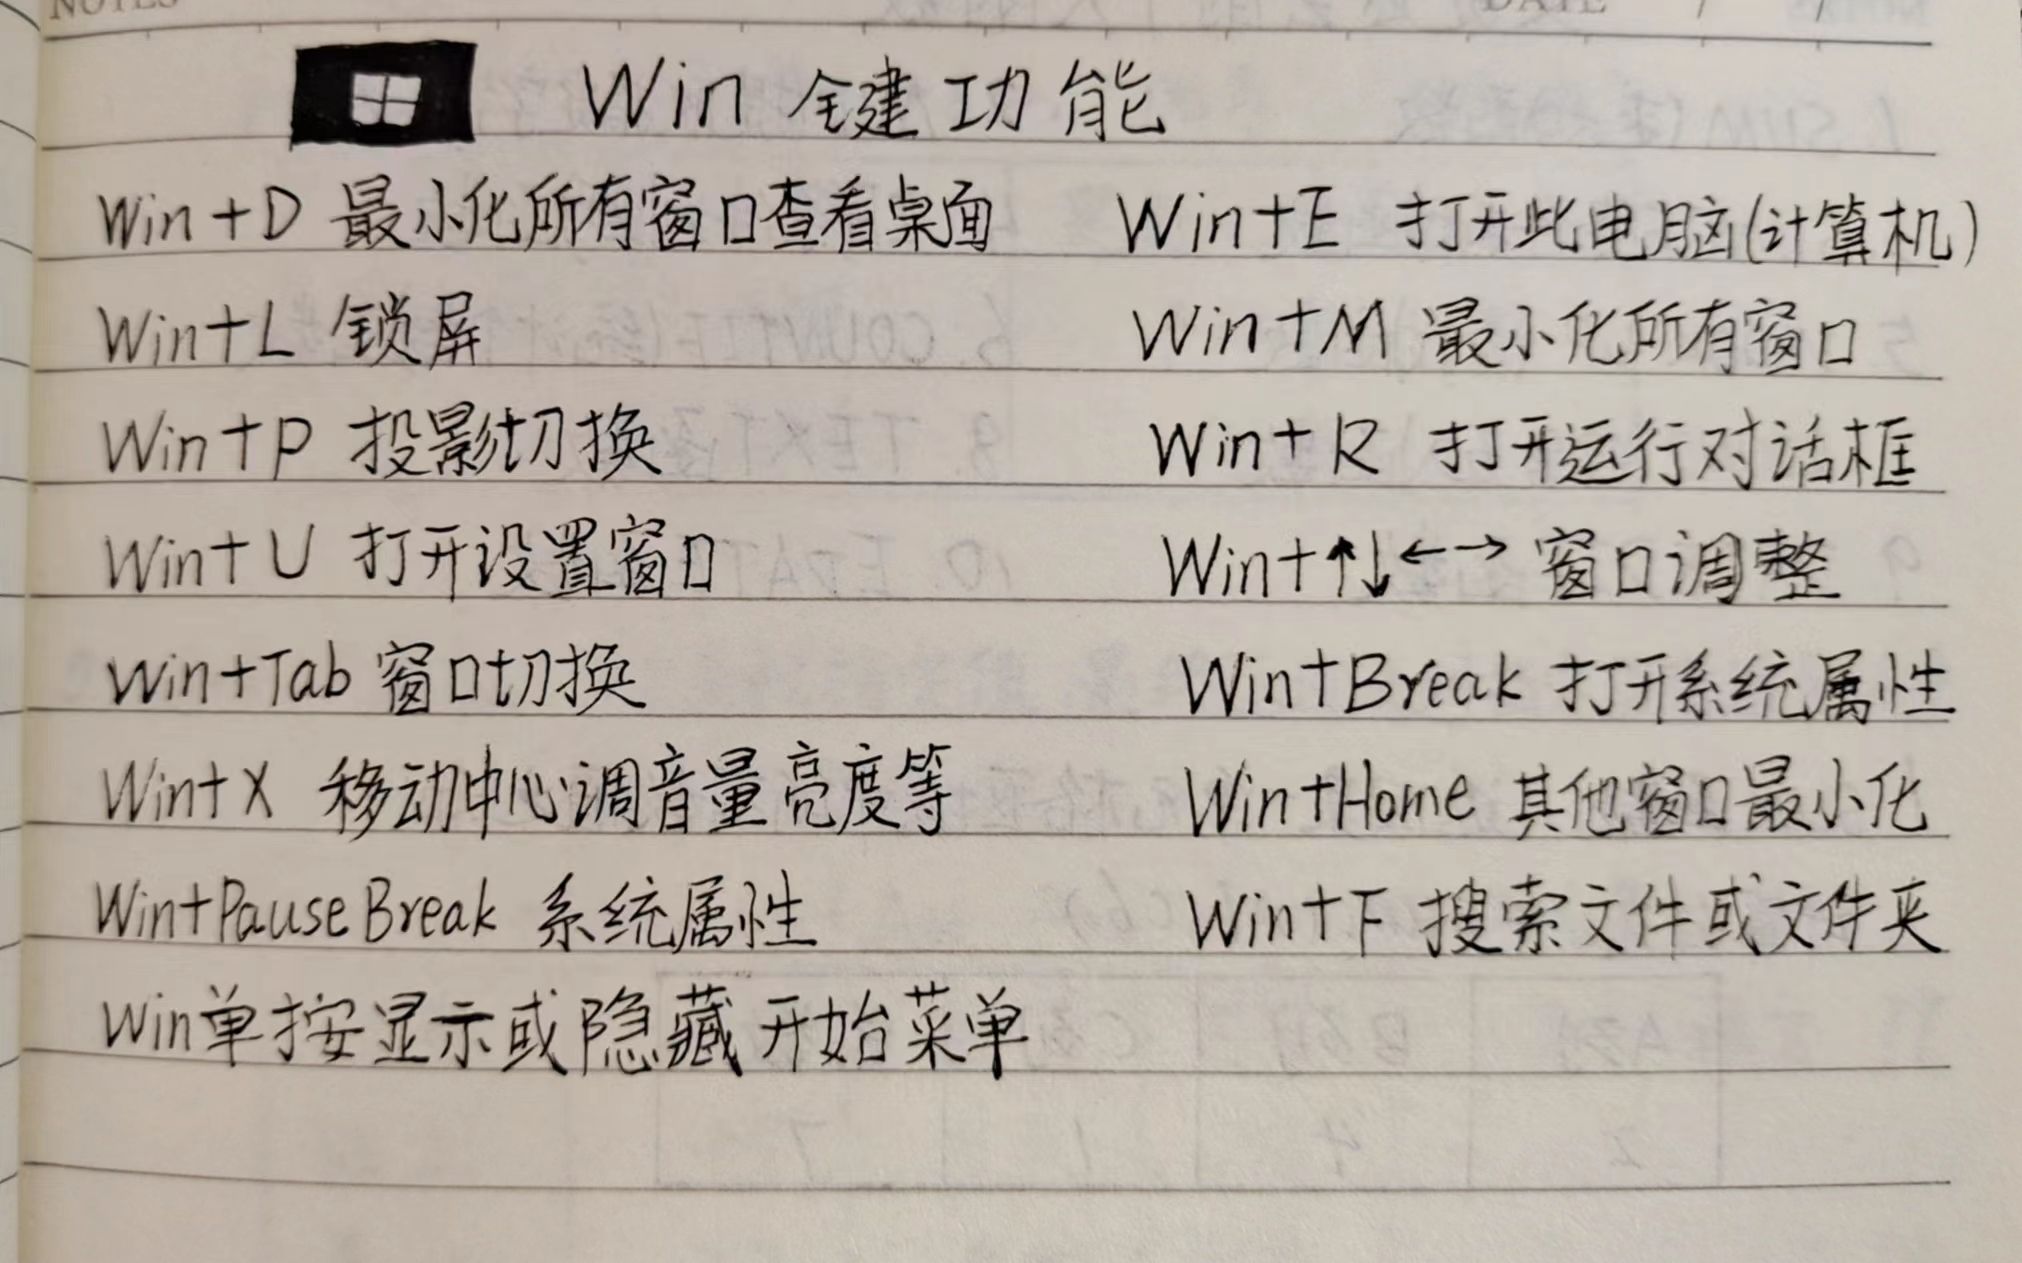 Win 键功能
Win+D 最小化所有窗口查看桌面 Win+E 打开此电脑(计算机)
Win+L 锁屏 Win+M 最小化所有窗口
Win+P 投影切换 Win+R 打开运行对话框
Win+U 打开设置窗口 Win+↑↓←→ 窗口调整
Win+Tab 窗口切换 Win+Break 打开系统属性
Win+X 移动中心调音量亮度等 Win+Home 其他窗口最小化
Win+Pause Break 系统属性 Win+F 搜索文件或文件夹
Win单按显示或隐藏开始菜单